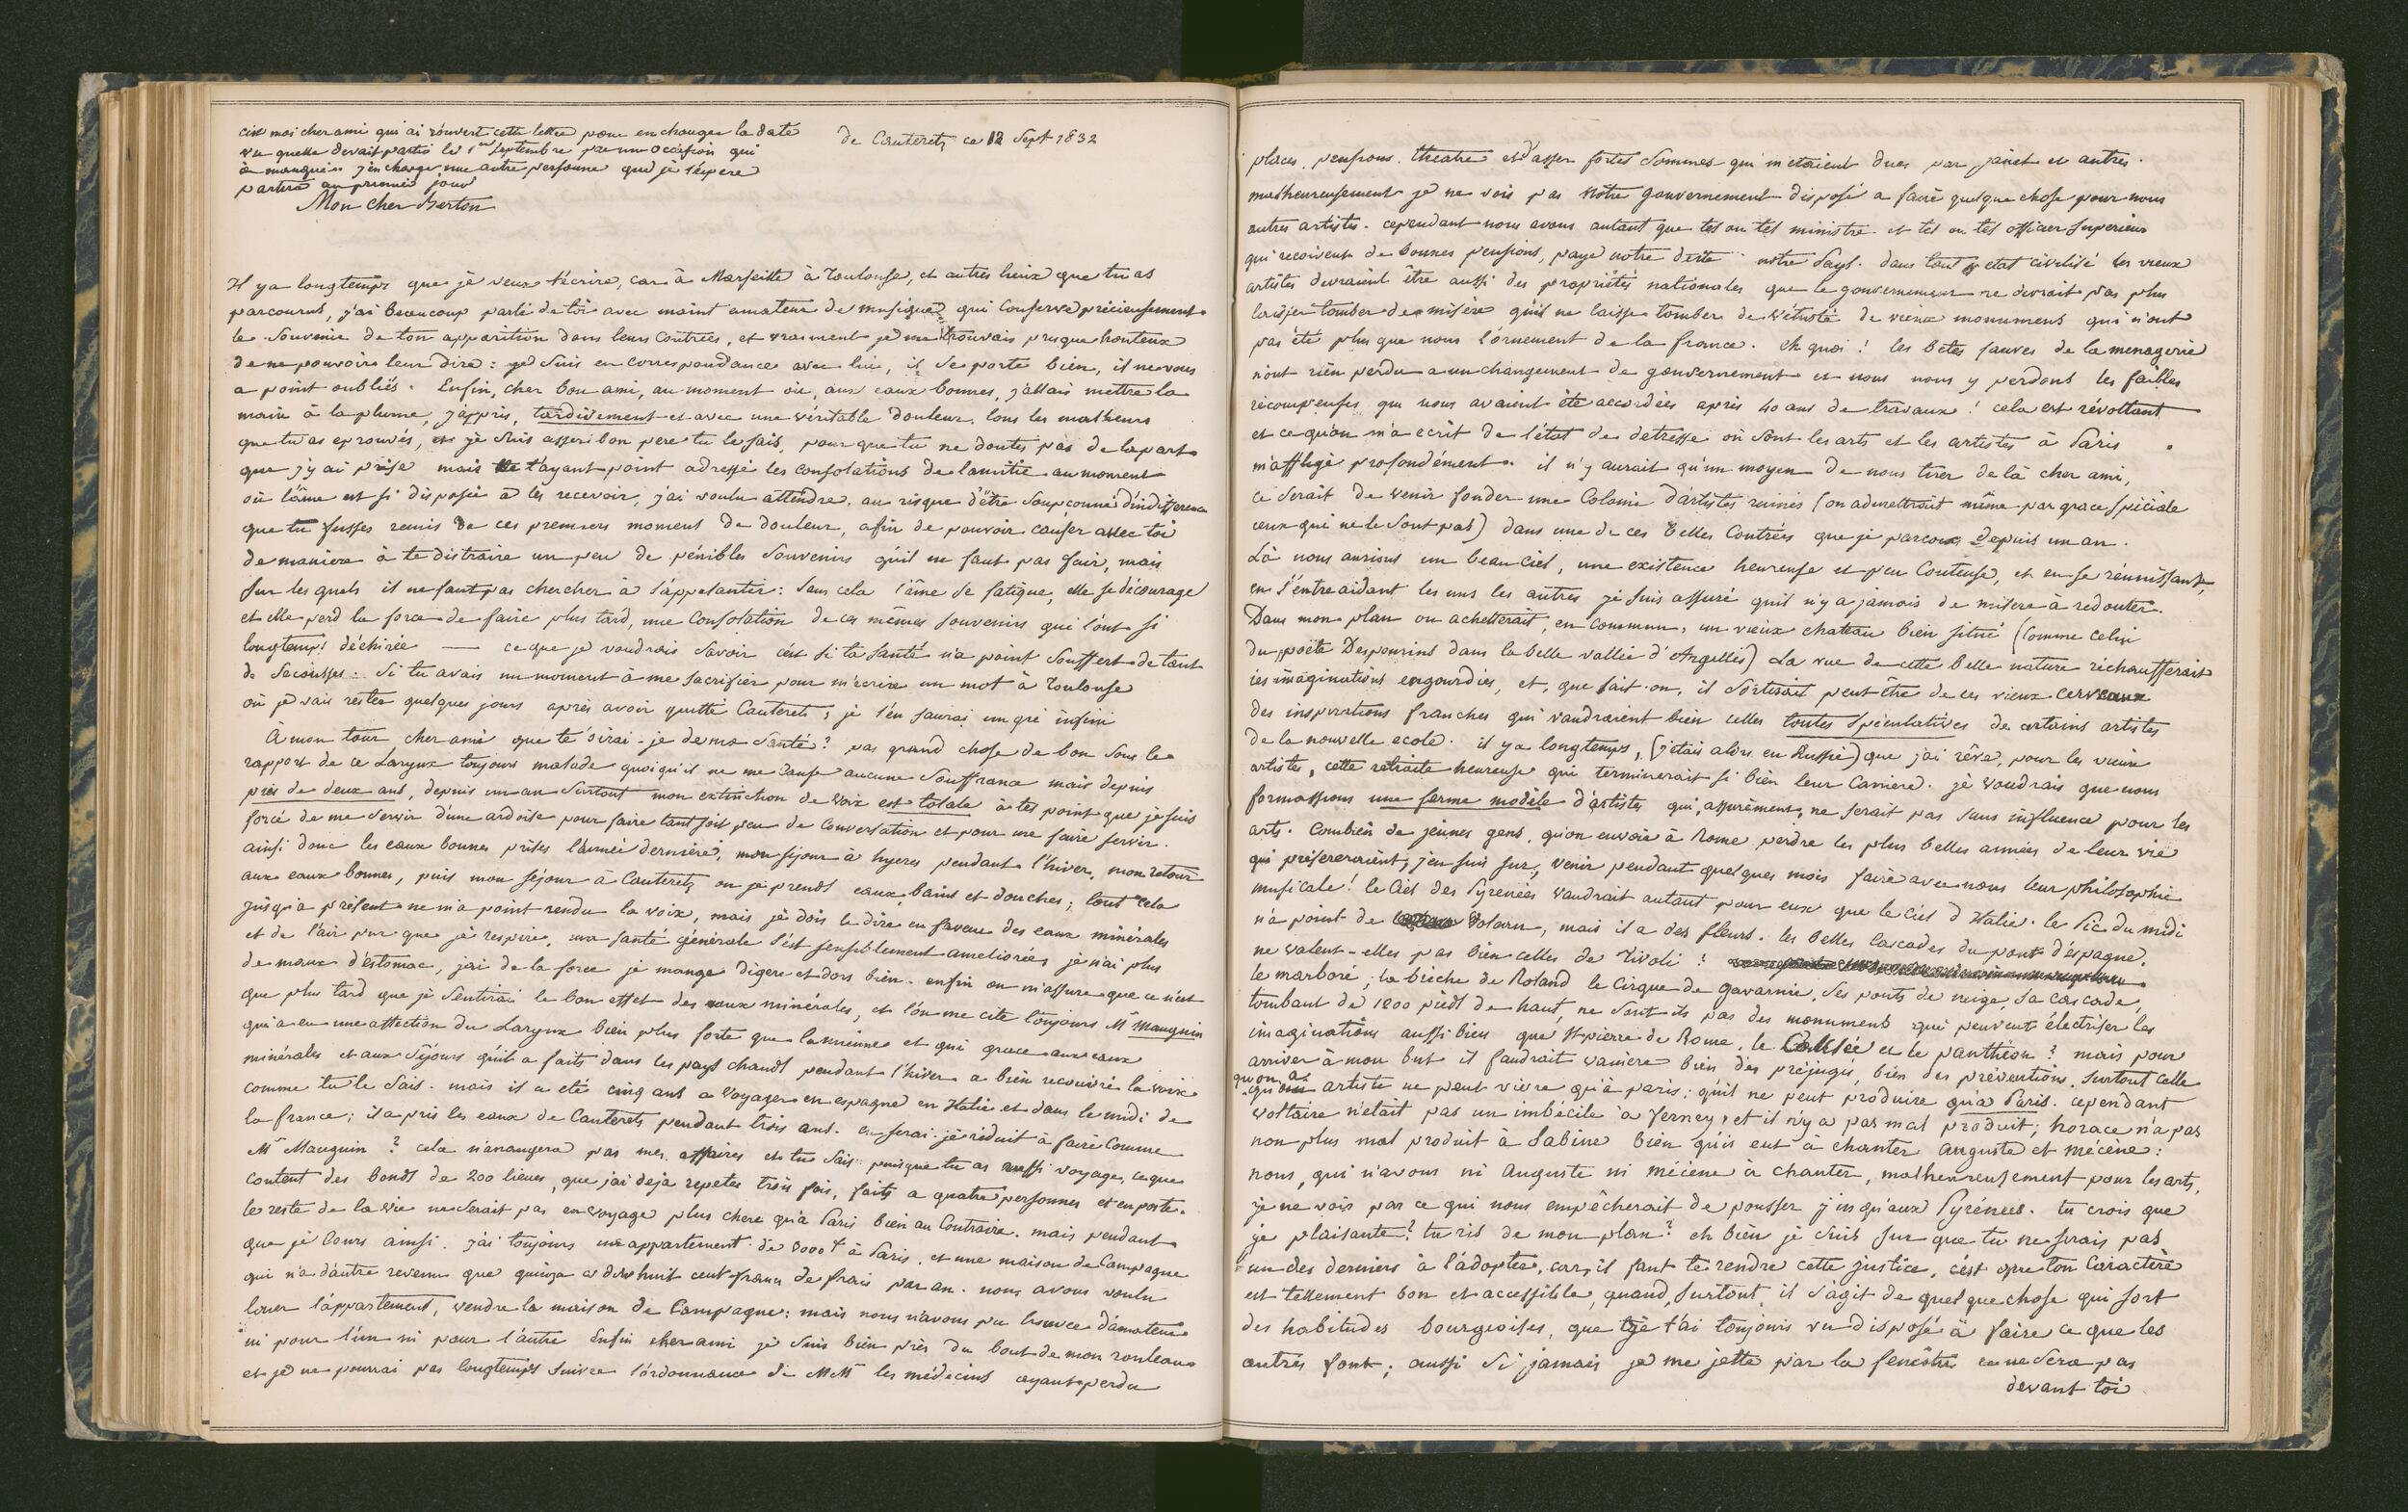 c'est moi cher ami qui ai réouvert cette lettre pour en changer la date
vu quelle devait partir le 1er septembre par une occasion qui
a manquée. j'en charge une autre personne qui je l'espere
partira au premier jour
de Cauterets ce 12 Sept 1832
Mon cher Berton
Il y a longtemps que je veux t'écrire, car à Marseille à Toulouse, et autres lieux que tu as
parcourus, j'ai beaucoup parlé de toi avec maint amateur de musique, qui conserve précieusement
le souvenir de ton apparition dans leurs contrées, et vraiment je me trouvais presque honteux
de ne pouvoir leur dire : je suis en correspondance avec lui, il se porte bien, il ne vous
a point oubliés. Enfin, cher bon ami, au moment où, aux eaux bonnes, j'allais mettre la
main à la plume, j'appris, tardivement et avec une véritable douleur tous les malheurs
que tu as eprouvés, et je suis assez bon pere tu le sais, pour que tu ne doutes pas de la part
que j'y ai prise mais ne t'ayant point adressé les consolations de l'amitié au moment
où l'âme est si disposée à les recevoir, j'ai voulu attendre, au risque d'être soupçonné d'indifférence
que tu fusses remis de ces premiers moments de douleur, afin de pouvoir causer avec toi
de maniere à te distraire un peu de pénibles souvenirs qu'il ne faut pas fuir, mais
sur les quels il ne faut pas chercher à s'appesantir : sans cela l'âme se fatigue, elle se décourage
et elle perd la force de faire plus tard, une consolation de ces mêmes souvenirs qui l'ont si
longtemps déchirée — ce que je voudrais savoir c'est si ta santé n'a point souffert de tant
de secousses. Si tu avais un moment à me sacrifier pour m'écrire un mot à Toulouse
où je vais rester quelques jours après avoir quitté Cauterets, je t'en saurai un gré infini
À mon tour cher ami que te dirai-je de ma santé ? pas grand chose de bon sous le
rapport de ce Larynx toujours malade quoiqu'il ne me cause aucune souffrance mais depuis
près de deux ans, depuis un an surtout mon extinction de voix est totale à tel point que je suis
forcé de me servir d'une ardoise pour faire tant soit peu de conversation et pour me faire servir.
ainsi donc les eaux bonnes prises l'année dernière, mon séjour à hyeres pendant l'hiver, mon retour
aux eaux bonnes, puis mon séjour à Cauterets ou je prends eaux, bains et douches ; tout cela
jusqu'a présent ne m'a point rendu la voix, mais je dois le dire en faveur des eaux minérales
et de l'air pur que je respire, ma santé générale s'est sensiblement ameliorée, je n'ai plus
de maux d'éstomac, j'ai de la force je mange digere et dors bien. enfin on m'assure que ce n'est
que plus tard que je sentirai le bon effet des eaux minérales, et l'on me cite toujours Mr Mauguin
qui a eu une affection du Larynx bien plus forte que la mienne et qui grace aux eaux
minérales et aux séjours qu'il a faits dans les pays chauds pendant l'hiver a bien recouvré la voix
comme tu le sais. mais il a été cinq ans a voyager en espagne en Italie et dans le midi de
la france ; il a pris les eaux de Cauterets pendant trois ans. en serai-je réduit à faire comme
Mr Mauguin ? cela n'arrangera pas mes affaires et tu sais puisque tu as aussi voyagé, ce que
content des bonds de 200 lieues, que j'ai deja repetés trois fois, faits a quatre personnes et en poste.
le reste de la vie ne serait pas en voyage plus chere qu'à Paris bien au contraire. mais pendant
que je cours ainsi, j'ai toujours un appartement de 3000 f à Paris, et une maison de Campagne
qui n'a d'autre revenu que quinze a dix huit cent francs de frais par an. nous avons voulu
louer l'appartement, vendre la maison de Campagne : mais nous n'avons pu trouver d'amateur
ni pour l'un ni pour l'autre Enfin cher ami je suis bien près du bout de mon rouleau
et je ne pourrai pas longtemps suivre l'ordonnance de MM les médecins ayant perdu
places, pensions, theatre et d'assez fortes sommes qui m'etaient dues par janet et autres.
malheureusement je ne vois pas notre gouvernement disposé a faire quelque chose pour nous
autres artistes. cependant nous avons autant que tel ou tel ministre et tel ou tel officier superieur
qui recoivent de bonnes pensions, payé notre dette à notre pays. dans tout etat civilisé les vieux
artistes devraient être aussi des propriétés nationales que le gouvernement ne devrait pas plus
laisser tomber de misère qu'il ne laisse tomber de vétusté de vieux monumens qui n'ont
pas été plus que nous l'ornement de la france. eh quoi ! les betes fauves de la menagerie
n'ont rien perdu a un changement de gouvernement et nous nous y perdons les faibles
récompenses qui nous avaient été accordées après 40 ans de travaux ! cela est révoltant
et ce qu'on m'a ecrit de l'état de detresse où sont les arts et les artistes à Paris
m'afflige profondément. il n'y aurait qu'un moyen de nous tirer de là cher ami,
ce serait de venir fonder une Colonie d'artistes ruinés (on admettrait même par grace spéciale
ceux qui ne le sont pas) dans une de ces belles contrées que je parcours depuis un an.
Là nous aurions un beau ciel, une existence heureuse et peu couteuse, et en se réunissant,
en s'entre aidant les uns les autres je suis assuré qu'il n'y a jamais de misere à redouter.
Dans mon plan on acheterait, en commun, un vieux chateau bien situé (comme celui
du poëte Despourins dans la belle vallée d'Argellès) La vue de cette belle nature réchaufferait
les imaginations engourdies, et, que sait-on, il sortirait peut être de ces vieux cerveaux
des inspirations franches qui vaudraient bien celles toutes spéculatives de certains artistes
de la nouvelle ecole. il y a longtemps, (j'étais alors en Russie) que j'ai rêvé, pour les vieux
artistes, cette retraite heureuse qui terminerait si bien leur carriere. je voudrais que nous
formassions une ferme modèle d'artistes qui, assurément, ne serait pas sans influence pour les
arts. Combien de jeunes gens, qu'on envoie à Rome perdre les plus belles années de leur vie
qui préfereraient, j'en suis sur, venir pendant quelques mois faire avec nous leur philosophie
musicale ! le Ciel des Pyrenées vaudrait autant pour eux que le ciel d'Italie. le Pic du midi
n'a point de Volcan, mais il a des fleurs. les belles cascades du pont d'éspagne,
ne valent-elles pas bien celles de Tivoli ?
le marboré, la brèche de Roland le cirque de Gavarnie, ses ponts de neige, sa cascade,
tombant de 1200 pieds de haut, ne sont ils pas des monuments qui peuvent électriser les
imaginations aussi bien que St pierre de Rome, le Colisée et le panthéon ? mais pour
arriver à mon but il faudrait vaincre bien des préjugés, bien des préventions, surtout celle
qu'un artiste ne peut vivre qu'à paris ; qu'il ne peut produire qu'à Paris. cependant
Voltaire n'était pas un imbécile à ferney, et il n'y a pas mal produit ; horace n'a pas
non plus mal produit à Sabine bien qu'il eut à chanter auguste et mécène :
nous, qui n'avons ni Auguste ni mécène à chanter, malheureusement pour les arts,
je ne vois pas ce qui nous empêcherait de pousser jusqu'aux Pyrénées. tu crois que
je plaisante ? tu ris de mon plan ? eh bien je suis sur que tu ne serais pas
un des derniers à l'adopter, car, il faut te rendre cette justice, c'est que ton caractère
est tellement bon et accessible, quand, surtout, il s'agit de quelque chose qui sort
des habitudes bourgeoises, que je t'ai toujours vu disposé à faire ce que les
autres font ; aussi si jamais je me jette par la fenêtre ce ne sera pas
devant toi